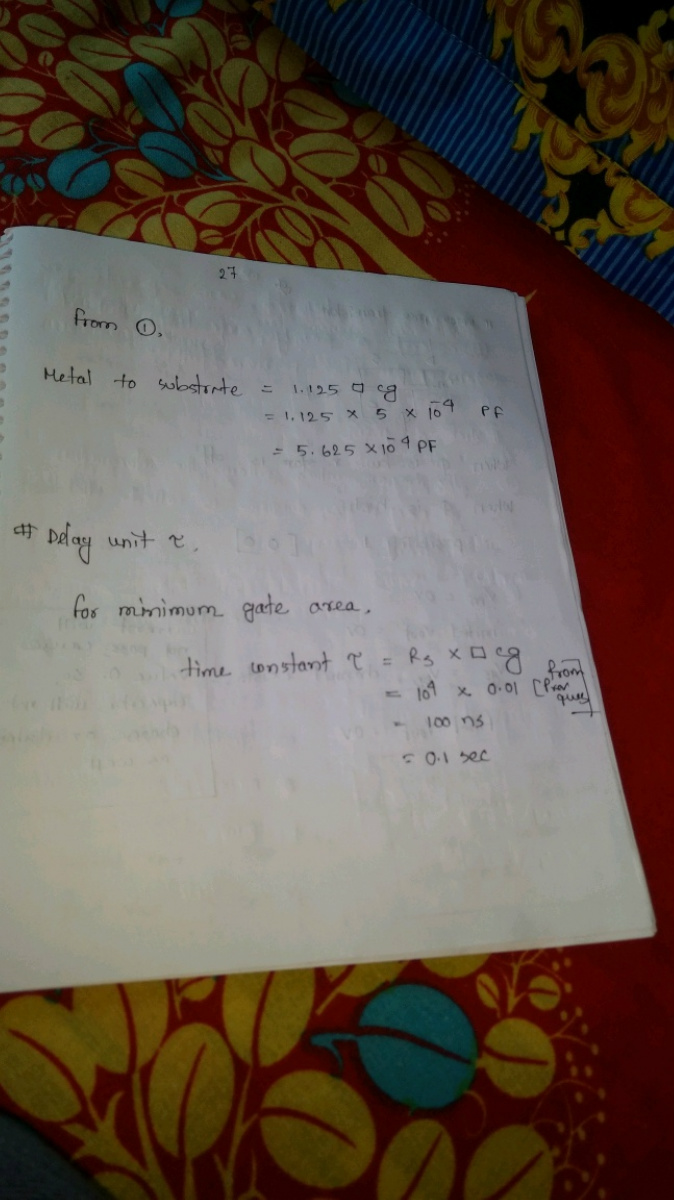 27
from ①,
Metal to substrate = 1.125 □ cg
= 1.125 × 5 × 10⁻⁴ PF
= 5.625 × 10⁻⁴ PF
# Delay unit τ,
for minimum gate area,
time constant τ = Rs × □ cg
= 10⁴ × 0.01 [from Prev ques]
= 100 ns
= 0.1 sec